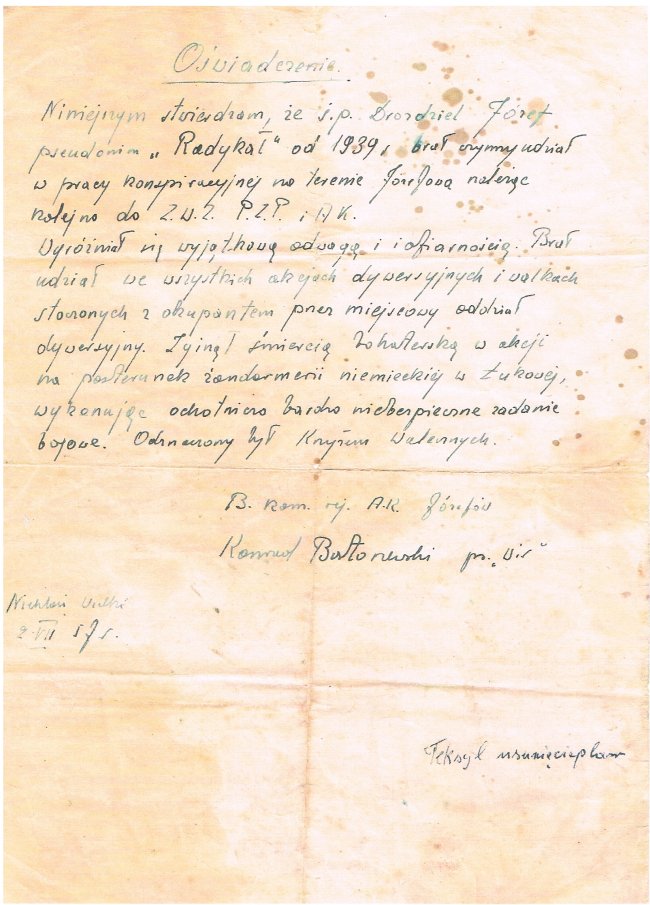 Oświadczenie.
Niniejszym stwierdzam, że ś.p. Drozdziel Józef
pseudonim „Radykał" od 1939 r. brał czynny udział
w pracy konspiracyjnej na terenie Józefowa należąc
kolejno do Z.W.Z. P.Z.P. i AK.
Wyróżniał się wyjątkową odwagą i ofiarnością. Brał
udział we wszystkich akcjach dywersyjnych i walkach
stoczonych z okupantem przez miejscowy oddział
dywersyjny. Zginął śmiercią bohaterską w akcji
na posterunek żandarmerii niemieckiej w Łukowej,
wykonując ochotniczo bardzo niebezpieczne zadanie
bojowe. Odznaczony był Krzyżem Walecznych.
B. kom. rej. A.K. Józefów
Konrad Bartoszewski ps. „Wir"
2 VII 57 r.